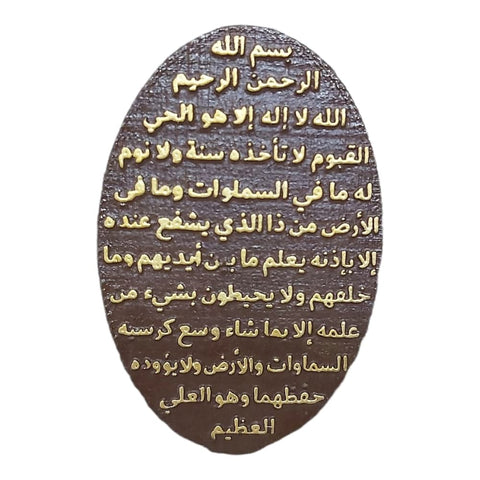 بسم الله
الرحمن الرحيم
الله لا إله إلا هو الحي
القيوم لا تأخذه سنة ولا نوم
له ما في السملوات وما في
الأرض من ذا الذي يشفع عنده
إلا بإذنه يعلم ما بين أيديهم وما
خلفهم ولا يحيطون بشيء من
علمه إلا بما شاء وسع كرسيه
السماوات والأرض ولا يؤوده
حفظهما وهو العلي
العظيم